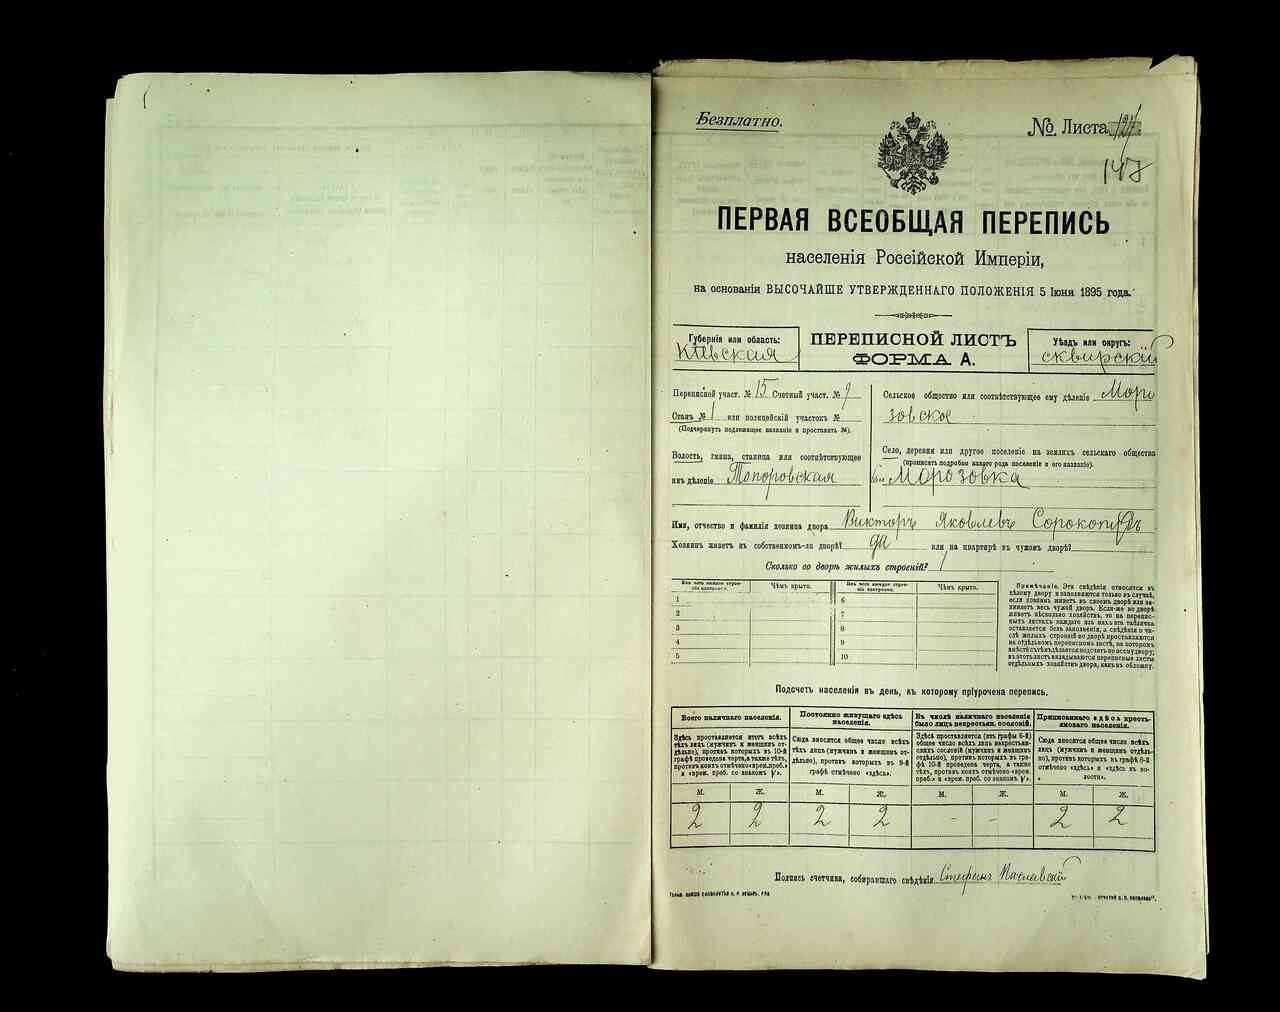 Безплатно.
№ Листа 121
147
ПЕРВАЯ ВСЕОБЩАЯ ПЕРЕПИСЬ
населенія Россійской Имперіи,
на основаніи ВЫСОЧАЙШЕ УТВЕРЖДЕННАГО ПОЛОЖЕНІЯ 5 Іюня 1895 года.
Губернія или область:
Кіевская
ПЕРЕПИСНОЙ ЛИСТЪ
ФОРМА А.
Уѣздъ или округъ:
сквирскій
Переписной участ. № 15 Счетный участ. № 9
Станъ № 1 или полицейскій участокъ №
(Подчеркнуть подлежащее названіе и проставить №).
Волость, гмина, станица или соотвѣтствующее
имъ дѣленіе Топоровская
Сельское общество или соотвѣтствующее ему дѣленіе Моро
зовское
Село, деревня или другое поселеніе на земляхъ сельскаго общества
(прописать подробно какого рода поселеніе и его названіе).
Морозовка
Имя, отчество и фамилія хозяина двора Викторъ Яковлевъ
Хозяинъ живетъ въ собственномъ-ли дворѣ? да или на квартирѣ въ чужомъ дворѣ?
Сколько во дворѣ жилыхъ строеній? 1
Изъ чего каждое строе-
ніе построено.
Чѣмъ крыто.
Изъ чего каждое строе-
ніе построено.
Чѣмъ крыто.
1 6
2 7
3 8
4 9
5 10
Примѣчаніе. Эти свѣдѣнія относятся къ
цѣлому двору и заполняются только въ случаѣ,
если хозяинъ живетъ въ своемъ дворѣ или за-
нимаетъ весь чужой дворъ. Если-же во дворѣ
живетъ нѣсколько хозяйствъ, то на перепис-
ныхъ листахъ каждаго изъ нихъ эта табличка
оставляется безъ заполненія, а свѣдѣнія о чи-
слѣ жилыхъ строеній во дворѣ проставляются
на отдѣльномъ переписномъ листѣ, на которомъ
вмѣстѣ съ тѣмъ дѣлается подсчетъ по всему двору;
въ этотъ листъ вкладываются переписные листы
отдѣльныхъ хозяйствъ двора, какъ въ обложку.
Подсчетъ населенія въ день, къ которому пріурочена перепись.
Всего наличнаго населенія.
Здѣсь проставляется итогъ всѣхъ
тѣхъ лицъ (мужчинъ и женщинъ от-
дѣльно), противъ которыхъ въ 10-й
графѣ проведена черта, а также тѣхъ,
противъ коихъ отмѣчено «врем. преб.»
и «врем. преб. со знакомъ V».
Постоянно живущаго здѣсь
населенія.
Сюда вносится общее число всѣхъ
тѣхъ лицъ (мужчинъ и женщинъ от-
дѣльно), противъ которыхъ въ 9-й
графѣ отмѣчено «здѣсь».
Въ числѣ наличнаго населенія
было лицъ некрестьян. сословій.
Здѣсь проставляется (изъ графы 6-й)
общее число всѣхъ лицъ некрестьян-
скихъ сословій (мужчинъ и женщинъ
отдѣльно), противъ которыхъ въ гра-
фѣ 10-й проведена черта, а также
тѣхъ, противъ коихъ отмѣчено «врем.
преб.» и «врем. преб. со знакомъ V».
Приписаннаго здѣсь кресть-
янскаго населенія.
Сюда вносится общее число всѣхъ
лицъ (мужчинъ и женщинъ отдѣль-
но), противъ которыхъ въ графѣ 8-й
отмѣчено «здѣсь» и «здѣсь въ во-
лости».
М. Ж. М. Ж. М. Ж. М. Ж.
2 2 2 2 - - 2 2
Подпись счетчика, собиравшаго свѣдѣнія Стефанъ